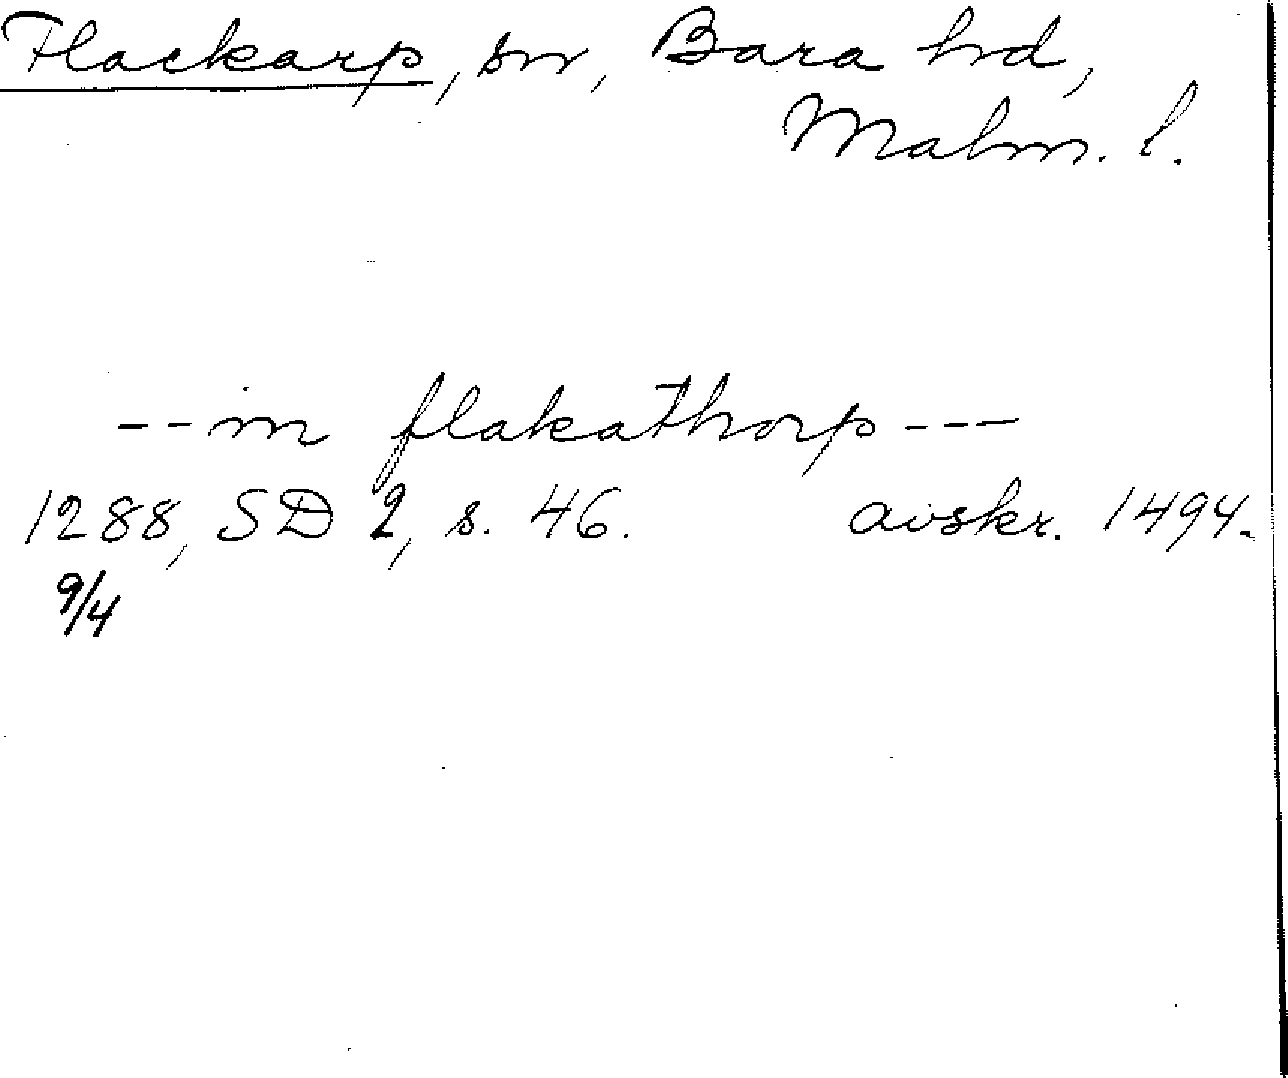 Flackarp, sn, Bara hd,
Malm. l.
--in flakathorp---
1288, SD 2, s. 46. avskr. 1494.
9/4